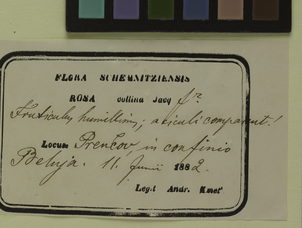 FLORA SCHEMNITZIENSIS
ROSA collina Jacq fr
Fruticulus humillimus; aciculi comparent!
Locus Prenčov in confinio
Beluja. 11. Junii 1882.
Legit Andr. Kmeť